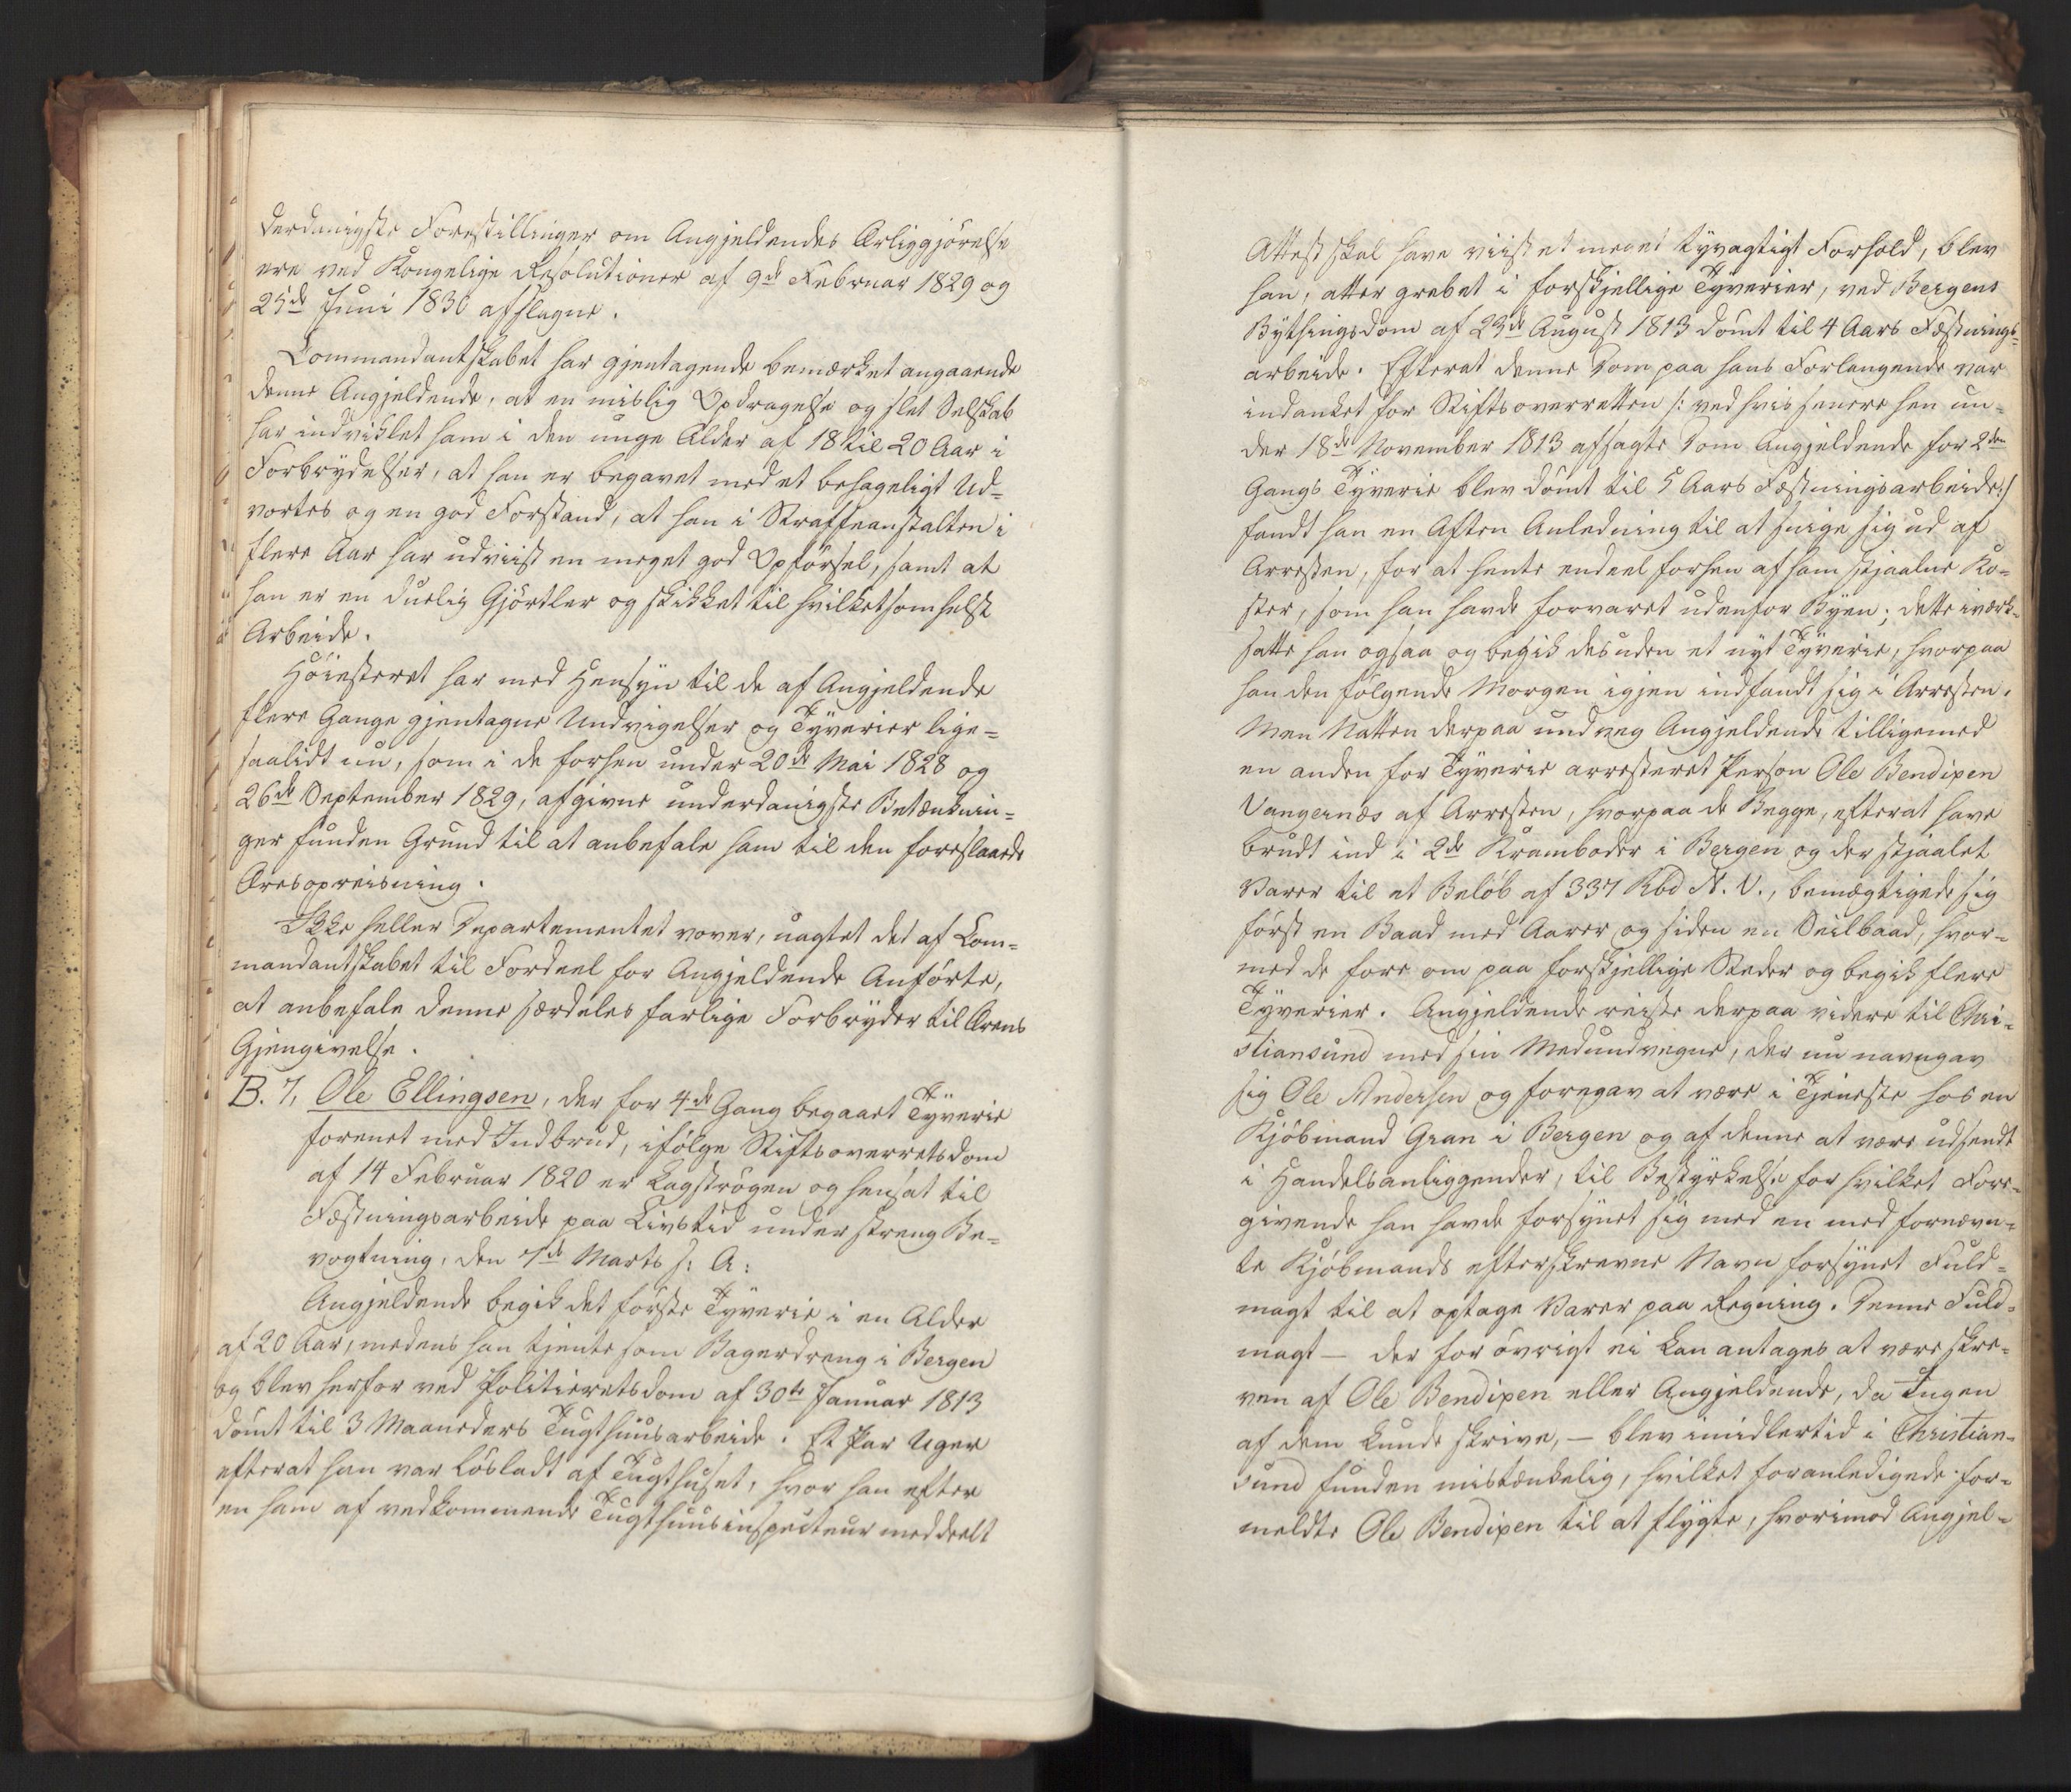 derdanigste Forestillinger om Angjeldendes Ærliggjörelse
ere ved Kongelige Resolutioner af 9de Februar 1829 og
25de Juni 1830 afslagne.
Commandantskabet har gjentagende bemærket angaaende
denne Angjeldende, at en mislig Opdragelse og slet Selskab
har indviklet ham i den unge Alder af 18 til 20 Aar i
Forbrydelser, at han er begavet med et behageligt Ud-
vortes og en god Forstand, at han i Straffeanstalten i
flere Aar har udviist en meget god Opförsel, samt at
han er en duelig Gjörtler og skikket til hvilketsomhelst
Arbeide.
Höiesteret har med Hensyn til de af Angjeldende
flere Gange gjentagne Undvigelser og Tyverier lige-
saalidt nu, som i de forhen under 20de Mai 1828 og
26de September 1829, afgivne underdanigste Betænknin-
ger funden Grund til at anbefale ham til den foreslaaede
Æresopreisning.
Ikke heller Departementet vover, uagtet det af Com-
mandantskabet til Fordeel for Angjeldende Anförte,
at anbefale denne særdeles farlige Forbryder til Ærens
Gjengivelse.
B. 7, Ole Ellingsen, der for 4de Gang begaaet Tyverie
forenet med Indbrud, ifölge Stiftsoverretsdom
af 14 Februar 1820 er kagströgen og hensat til
Fæstningsarbeide paa Livstid under streng Be-
vogtning, den 7de Marts s: A:
Angjeldende begik det förste Tyverie i en Alder
af 20 Aar, medens han tjente som Bagerdreng i Bergen
og blev herfor ved Politieretsdom af 30te Januar 1813
dömt til 3 Maaneders Tugthuusarbeide. Et Par Uger
efterat han var lösladt af Tugthuset, hvor han efter
en ham af vedkommende Tugthuusinspecteur meddeelt
Attest skal have viist et meget tyvagtigt Forhold, blev
han, atter grebet i forskjellige Tyverier, ved Bergens
Bythingsdom af 23de August 1813 dömt til 4 Aars Fæstnings-
arbeide. Efterat denne Dom paa hans Forlangende var
indanket for Stiftsoverretten /: ved hvis senere hen un-
der 18de November 1813 afsagte Dom Angjeldende for 2den
Gangs Tyverie blev dömt til 5 Aars Fæstningsarbeide :/
fandt han en Aften Anledning til at snige sig ud af
Arresten, for at hente endeel forhen af ham stjaalne Ko-
ster, som han havde forvaret udenfor Byen; dette iværk-
satte han ogsaa og begik desuden et nyt Tyverie, hvorpaa
han den fölgende Morgen igjen indfandt sig i Arresten.
Men Natten derpaa undveg Angjeldende tilligemed
en anden for Tyverie arresteret Person Ole Bendixen
Vangernæs af Arresten, hvorpaa de Begge, efterat have
brudt ind i 2de Kramboder i Bergen og der stjaalet
Varer til et Belöb af 337 Rbd N. V., bemægtigede sig
först en Baad med Aarer og siden en Seilbaad, hvor-
med de fore om paa forskjellige Steder og begik flere
Tyverier. Angjeldende reiste derpaa videre til Chri-
stiansund med sin Medundvegne, der nu navngav
sig Ole Andersen og foregav at være i Tjeneste hos en
Kjöbmand Gran i Bergen og af denne at være udsendt
i Handelsanliggender, til Bestyrkelse for hvilket Fore-
givende han havde forsynet sig med en med fornævn-
te Kjöbmands efterskrevne Navn forsynet Fuld-
magt til at optage Varer paa Regning. Denne Fuld-
magt — der for övrigt ei kan antages at være skre-
ven af Ole Bendixen eller Angjeldende, da Ingen
af dem kunde skrive, — blev imidlertid i Christian-
sund funden mistænkelig, hvilket foranledigede for-
meldte Ole Bendixen til at flygte, hvorimod Angjel-